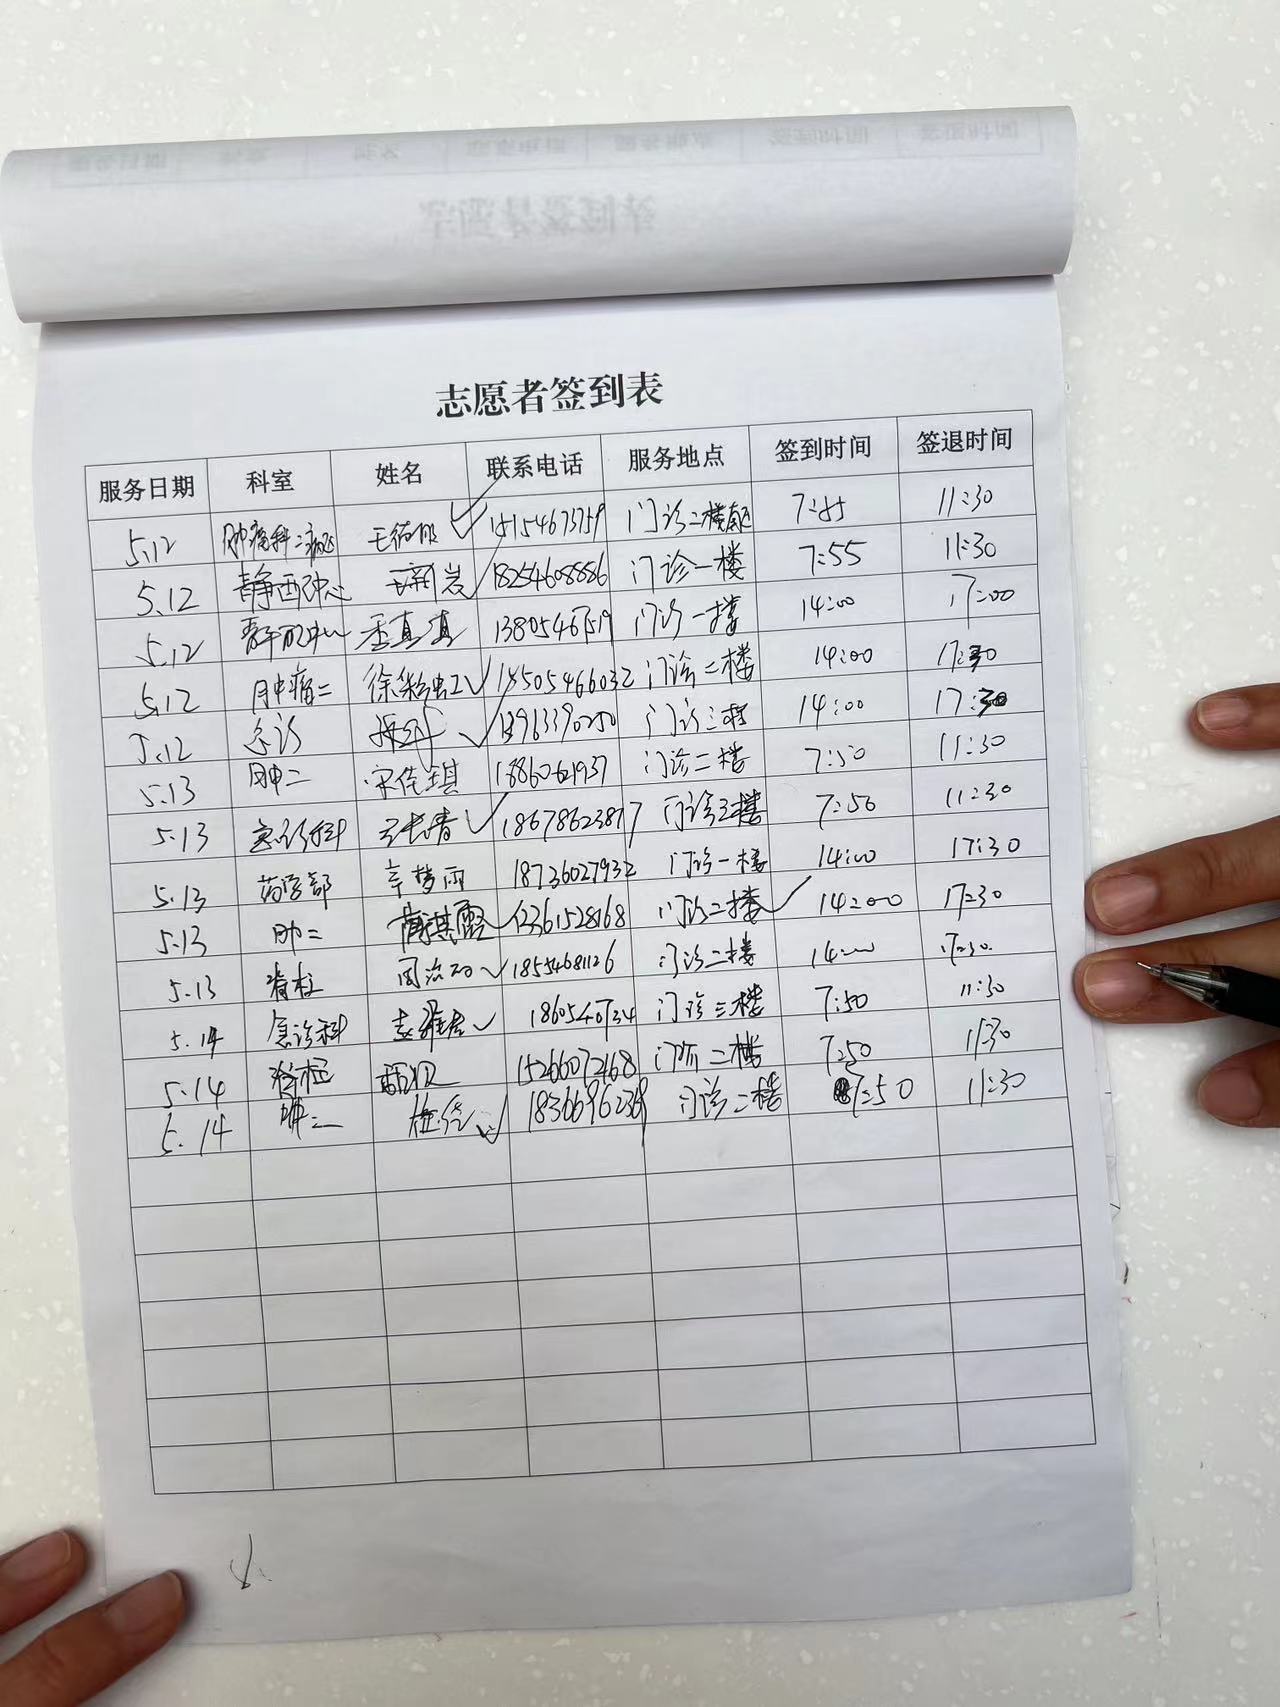 志愿者签到表
服务日期 科室 姓名 联系电话 服务地点 签到时间 签退时间
5.12 肿瘤科二病区 15154673759 门诊二楼 7:45 11:30
5.12 静配中心 18254608886 门诊一楼 7:55 11:30
5.12 静配中心 孟真真 门诊一楼 14:00 17:00
5.12 肿瘤二 徐彩虹 18505466032 门诊二楼 14:00 17:30
5.12 急诊 13963390250 门诊三楼 14:00 17:30
5.13 肿二 宋佳琪 18860621937 门诊二楼 7:50 11:30
5.13 急诊科 18678623877 门诊三楼 7:50 11:30
5.13 药学部 辛梦雨 18736027932 门诊一楼 14:00 17:30
5.13 肿二 13361528168 门诊二楼 14:00 17:30
5.13 脊柱 门诊二楼 14:00 17:30
5.14 急诊科 门诊三楼 7:50 11:30
5.14 脊柱 15266072168 门诊二楼 7:50 11:30
5.14 肿二 18366696239 门诊二楼 7:50 11:30